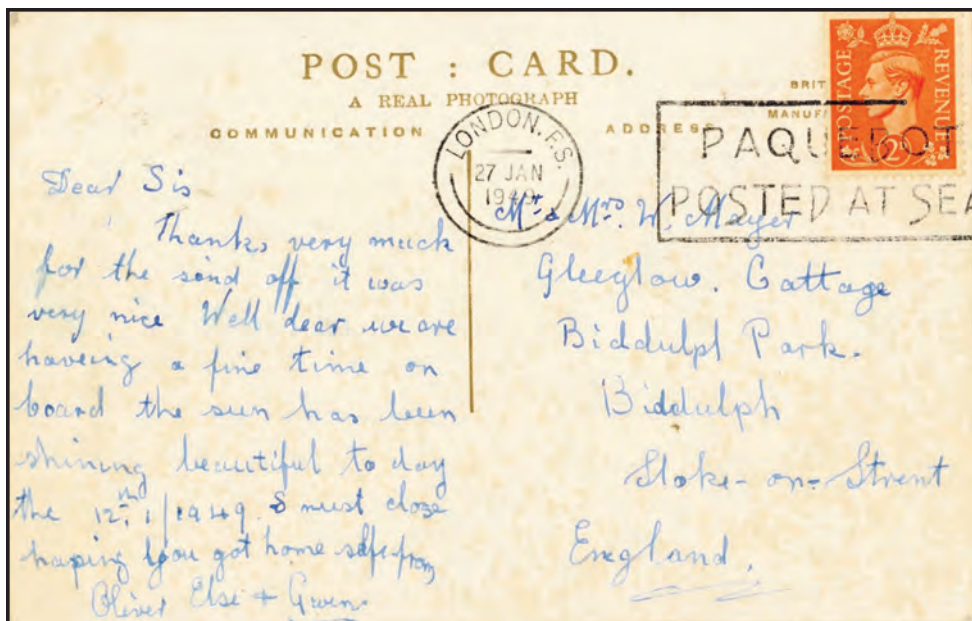 POST : CARD.
A REAL PHOTOGRAPH
COMMUNICATION
ADDRESS
BRIT
MANUF
POSTAGE
REVENUE
2D
LONDON. F.S.
27 JAN
1949
PAQUEBOT
POSTED AT SEA
Dear Sis
Thanks very much
for the send off it was
very nice Well dear we are
haveing a fine time on
board the sun has been
shining beautiful to day
the 12th 1/1949. I must close
hoping you got home safe from
Oliver Else + Gwen
Mr & Mrs. W. Mayer
Cottage
Biddulph Park.
Biddulph
Stoke-on-Strent
England.